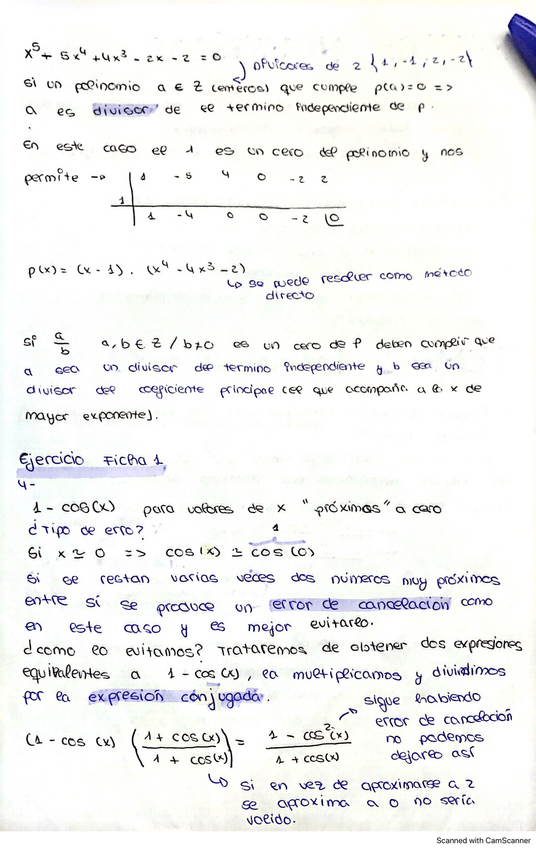 x⁵ + 5x⁴ + 4x³ - 2x - 2 = 0
divisores de 2 {1, -1, 2, -2}
si un polinomio a ∈ Z (enteros) que cumple p(a)=0 =>
a es divisor de el termino independiente de p.
En este caso el 1 es un cero del polinomio y nos
permite → 1 -5 4 0 -2 2
1
1 -4 0 0 -2 0
p(x) = (x - 1) . (x⁴ - 4x³ - 2)
↳ se puede resolver como método
directo
Si a/b a, b ∈ Z / b≠0 es un cero de P deben cumplir que
a sea un divisor del termino independiente y b sea un
divisor del coeficiente principal (el que acompaña a la x de
mayor exponente).
Ejercicio Ficha 1
4-
1 - cos(x) para valores de x "próximos" a cero
¿Tipo de erro?
1
Si x ≃ 0 => cos(x) ≃ cos(0)
Si se restan varias veces dos números muy próximos
entre sí se produce un error de cancelación como
en este caso y es mejor evitarlo.
¿como lo evitamos? Trataremos de obtener dos expresiones
equivalentes a 1 - cos(x), la multiplicamos y dividimos
por la expresión conjugada.
sigue habiendo
error de cancelación
no podemos
dejarlo así
(1 - cos (x) (1 + cos(x) / 1 + cos(x)) = 1 - cos²(x) / 1 + cos(x)
↳ si en vez de aproximarse a 2
se aproxima a 0 no sería
valido.
Scanned with CamScanner